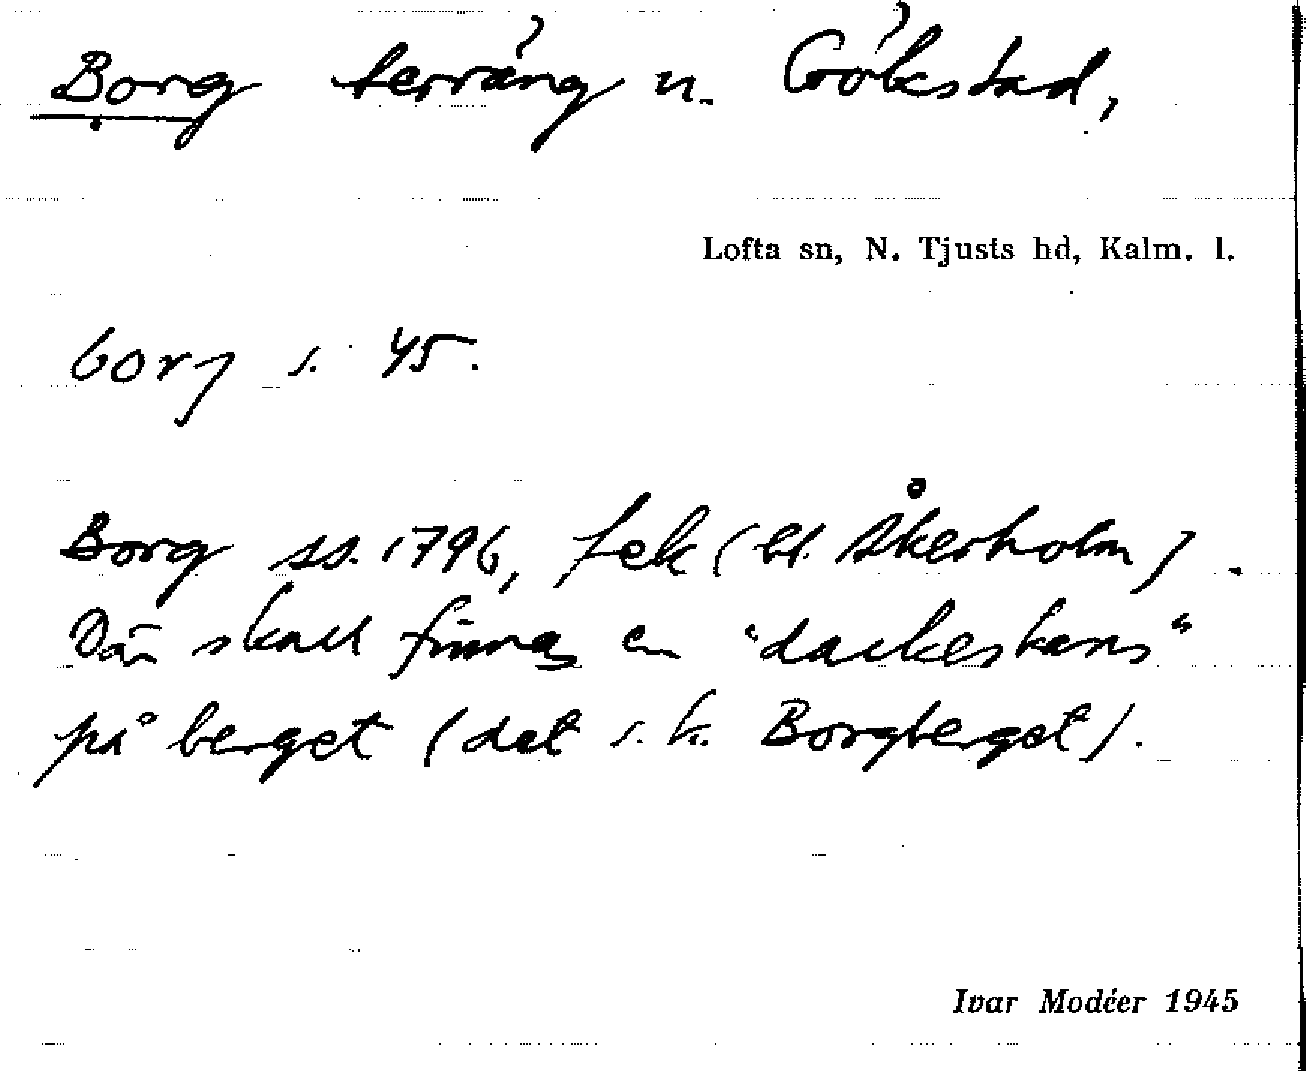 Borg terräng u. Gökstad,
Lofta sn, N. Tjusts hd, Kalm. l.
borj s. 45.
Borg ss. 1796, fek (bl. Åkerholm).
Där skall finnas en "dackeskans"
på berget (det s.k. Borgberget).
Ivar Modéer 1945